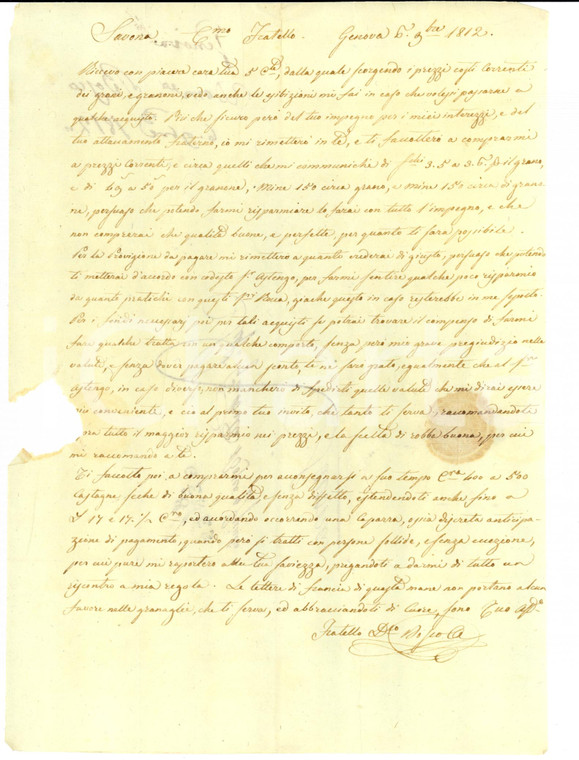 Savona. C.mo Fratello. Genova 6. 9bre 1812.
Ricevo con piacere cara tua 5 C.te, dalla quale scorgendo i prezzi costì correnti
dei grani e granone, vedo anche le esibizioni mi fai in caso che volessi passarne a
qualche acquisto. Bò che sicuro però del tuo impegno per i miei interessi, e del
tuo attaccamento fraterno, io mi rimetterò in te, e ti faccoltero a comprarmi
a prezzi correnti, e circa quelli che mi communiche di 35 a 36 il grano,
e di a per il granone, Mine 150 circa grano, e mine 150 circa di grano
ne, persuaso che potendo farmi risparmiare lo farai con tutto l'impegno, e che
non comprerai che qualità buone, e perfette, per quanto ti sarà possibile.
Per la Provigione da pagare mi rimettero a quanto vederai di giusto, persuaso che potendo
ti metterai d'accordo con codesto Sr. Astengo, per farmi sentire qualche poco risparmio
da quanto pratichi con questi Sri. giache questo in caso resterebbe in me sepolto.
Per i fondi necessarj poi per tali acquisti se potrai trovare il compenso di farmi
fare qualche tratta con un qualche comporto, senza però mio grave pregiudizio nelle
valute, e senza dover pagare alcun sconto, te ne sarò grato, egualmente che al Sr.
Astengo, in caso diverso, non mancherò di spedirti quelle valute che mi dirai essere
più conveniente, e ciò al primo tuo invito, che tanto ti serva, raccomandandoti
sopra tutto il maggior risparmio nei prezzi, e la scelta di robbe buone, per cui
mi raccomando a te.
Ti faccolto poi a comprarmi per acconsegnarsi a suo tempo C.ra 400 a 500
Castagne secche di buona qualità e senza difetto, estendendoti anche fino a
£ 17 e 17.½ C.ro, ed accordando occorrendo una caparra, ossia discreta anticipa-
zione di pagamento, quando però si tratti con persone sollide, e senza eccezione,
per cui pure mi riporterò alla tua saviezza, pregandoti a darmi di tutto un
riscontro a mia regola. Le lettere di Francia di questa mane non portano alcun
favore nelle granaglie, che ti serva, ed abbracciandoti di cuore, sono Tuo
Fratello D.co